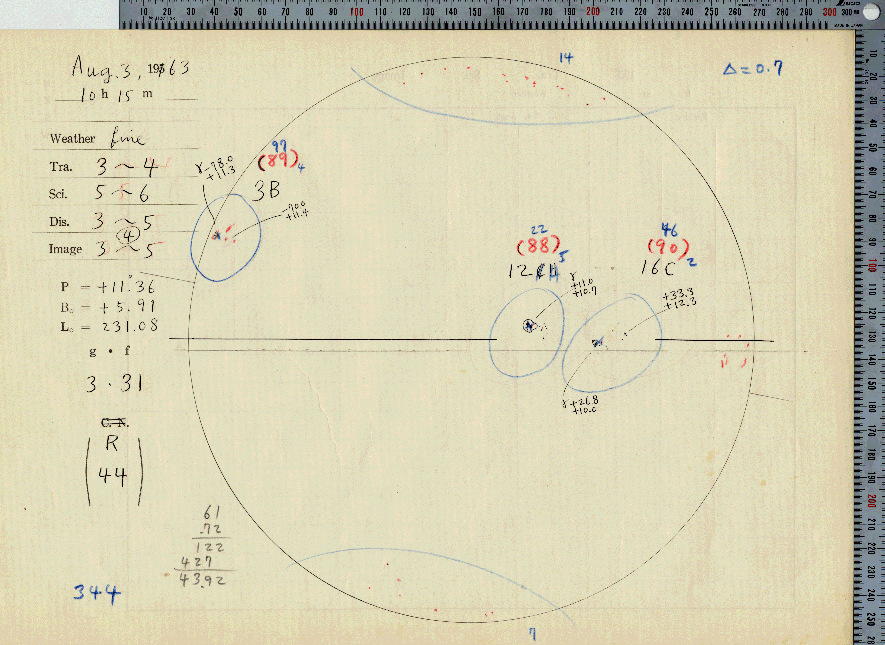 Aug. 3, 1963
10 h 15 m
Weather fine
Tra. 3 ~ 4
Sci. 5 ~ 6
Dis. 3 ~ 5
(4)
Image 3 ~ 5
P = +11.36
B₀ = +5.91
L₀ = 231.08
g · f
3 · 31
C. N.
R
44
61
.72
122
427
43.92
344
14
Δ = 0.7
97
(89) 4
3B
γ -78.0
+11.3
-70.0
+11.4
22
(88) 5
12
γ
+11.0
+10.7
46
(90)
16C 2
+33.8
+12.3
γ +26.8
+10.0
7